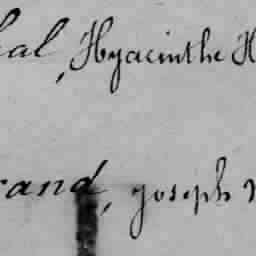 hal, Hyacinthe H
rand, joseph